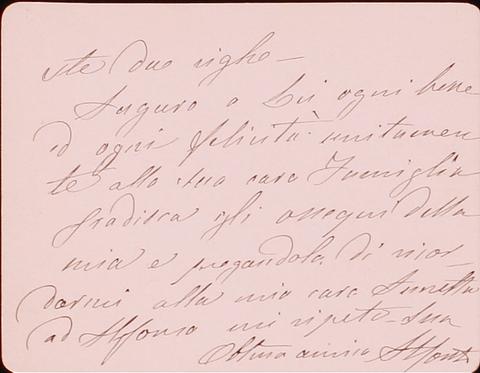 ste due righe –
Auguro a Lei ogni bene
ed ogni felicità unitamen
te alla sua cara Famiglia
gradisca gli ossequi della
mia e pregandola di ricor-
darmi alla mia cara
ad Alfonso mi ripeto – sua
amica